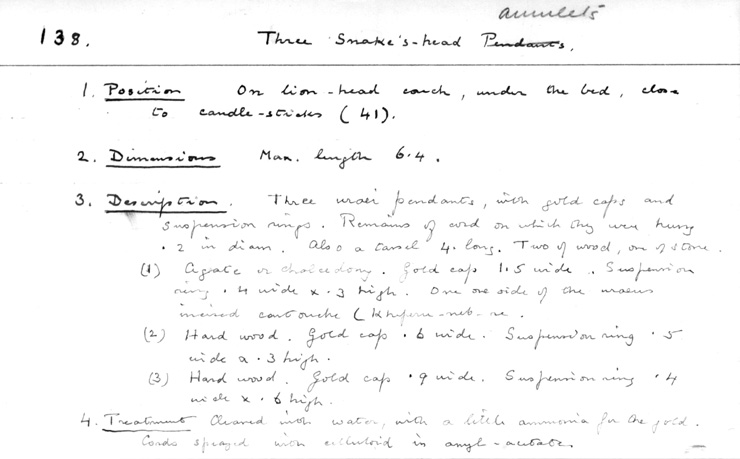 amulets
138. Three Snake's-head Pendants.
1. Position On lion-head couch, under the bed, close
to candle-sticks (41).
2. Dimensions Max. length 6.4.
3. Description. Three uraei pendants, with gold caps and
suspension rings. Remains of cord on which they were hung
.2 in diam. Also a tassel 4. long. Two of wood, one of stone.
(1) Agate or chalcedony. Gold cap 1.5 wide. Suspension
ring .4 wide x .3 high. One one side of the uraeus
incised cartouche (Kheperu-neb-re.
(2) Hard wood. Gold cap .6 wide. Suspension ring .5
wide x .3 high.
(3) Hard wood. Gold cap .9 wide. Suspension ring .4
wide x .6 high.
4. Treatment Cleaned with water, with a little ammonia for the gold.
Cords sprayed with celluloid in amyl-acetate.